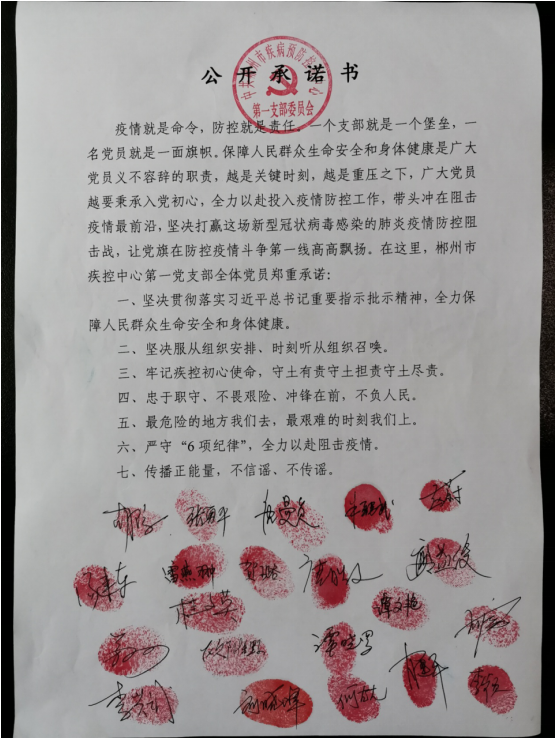 公开承诺书
第一支部委员会
疫情就是命令，防控就是责任。一个支部就是一个堡垒，一
名党员就是一面旗帜。保障人民群众生命安全和身体健康是广大
党员义不容辞的职责，越是关键时刻，越是重压之下，广大党员
越要秉承入党初心，全力以赴投入疫情防控工作，带头冲在阻击
疫情最前沿，坚决打赢这场新型冠状病毒感染的肺炎疫情防控阻
击战，让党旗在防控疫情斗争第一线高高飘扬。在这里，郴州市
疾控中心第一党支部全体党员郑重承诺：
一、坚决贯彻落实习近平总书记重要指示批示精神，全力保
障人民群众生命安全和身体健康。
二、坚决服从组织安排、时刻听从组织召唤。
三、牢记疾控初心使命，守土有责守土担责守土尽责。
四、忠于职守、不畏艰险、冲锋在前，不负人民。
五、最危险的地方我们去，最艰难的时刻我们上。
六、严守“6项纪律”，全力以赴阻击疫情。
七、传播正能量，不信谣、不传谣。